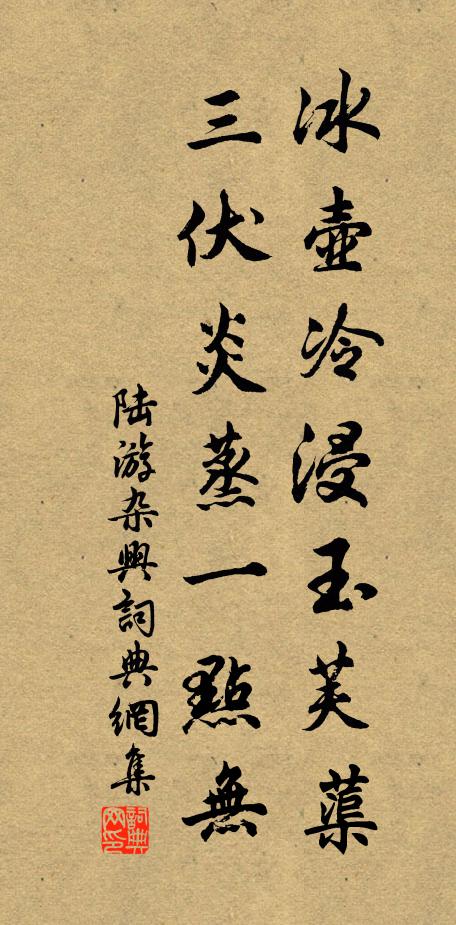 冰壺冷浸玉芙蕖
三伏炎蒸一點無
陆游杂興詞典網集
詞典网印